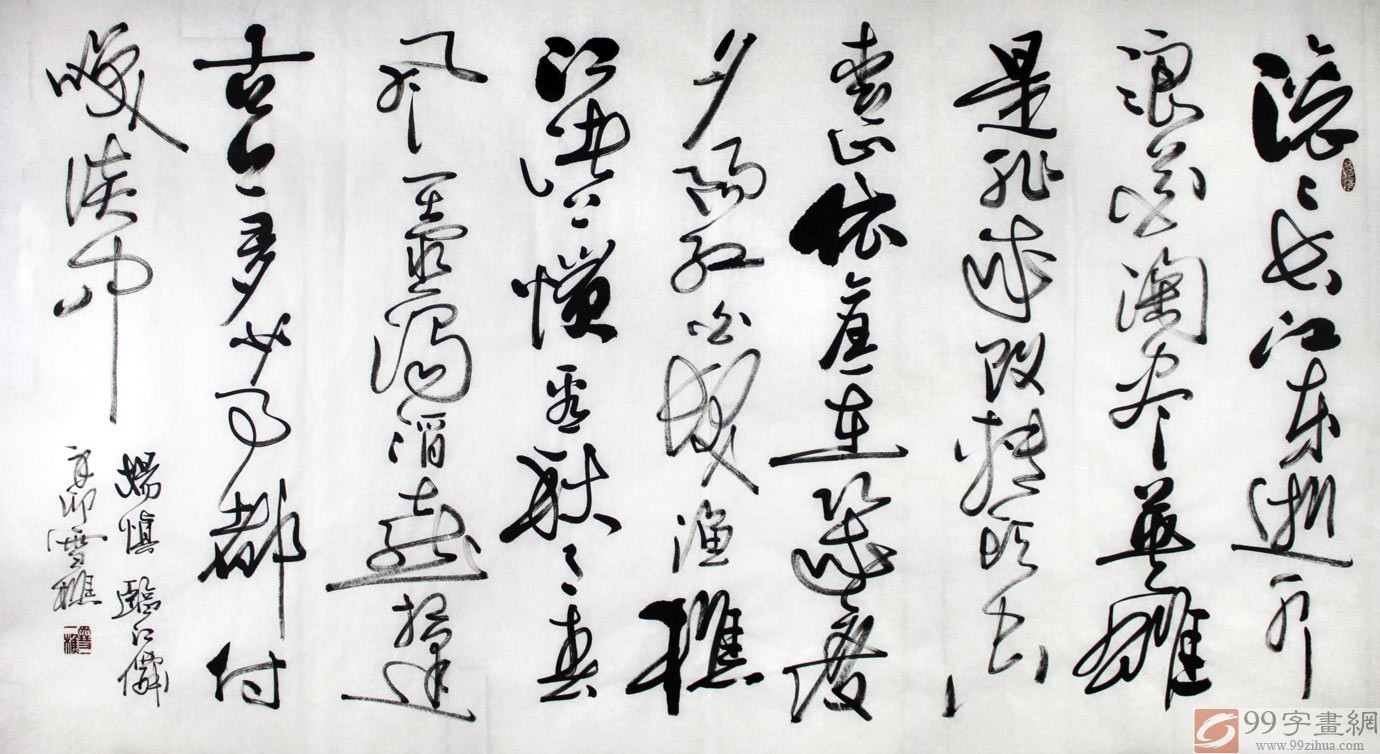 滚滚长江东逝水
浪花淘尽英雄
是非成败转头空
青山依旧在几度
夕陽红白发渔樵
江渚上惯看秋月春
风一壶浊酒喜相逢
古今多少事都付
笑谈中
楊慎 臨江僊
辛卯雪樵
99字畫網
www.99zihua.com